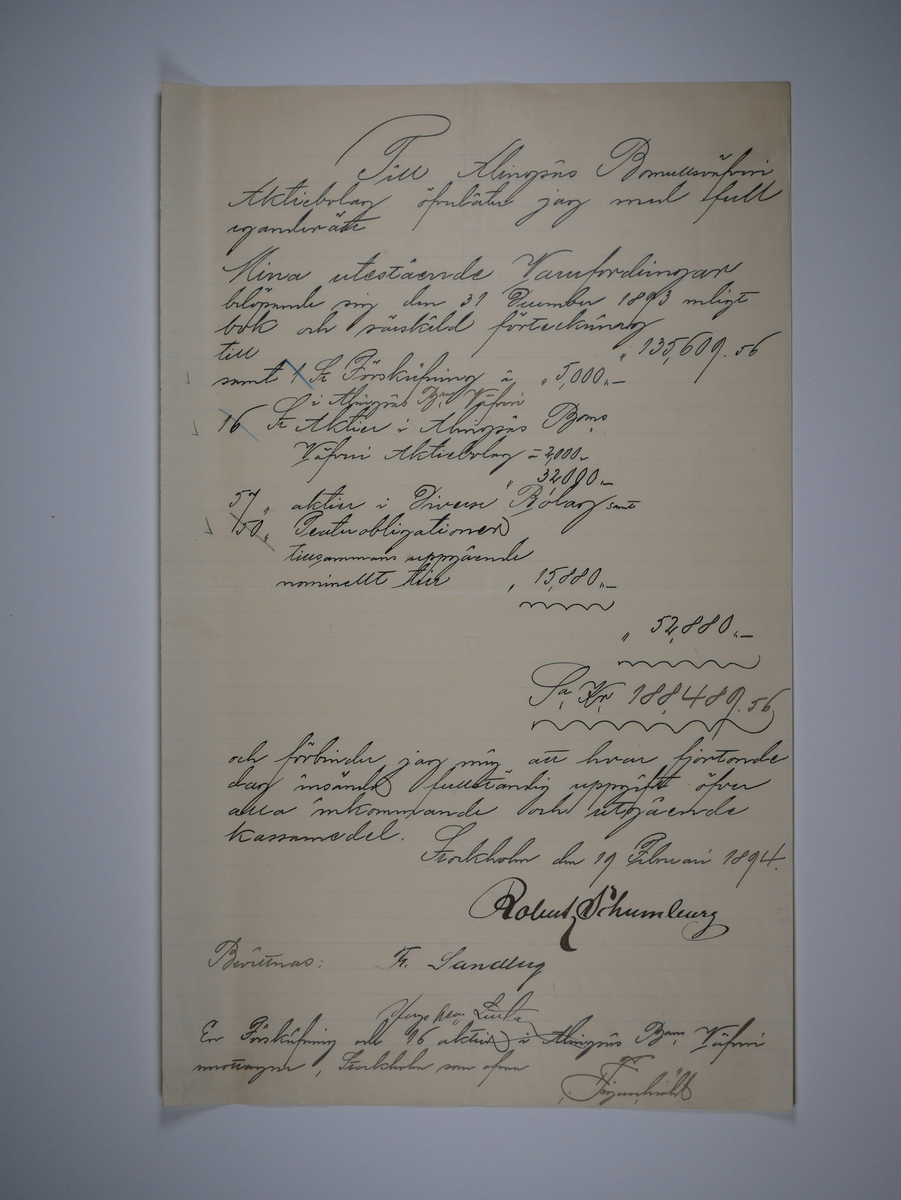 Till Alingsås Bomullsväfveri
Aktiebolag öfverlåter jag med full
eganderätt
Mina utestående Varufordringar
belöpande sig den 31 December 1893 enligt
bok och särskild förteckning
till " 135,609.56
samt 1 St Förskrifning à " 5,000.-
i Alingsås Bms Väfveri
16 St Aktier i Alingsås Boms
Väfveri Aktiebolag = 2,000.-
" 32,000.-
57 " aktier i Diverse Bolag samt
150 " Teaterobligationer
tillsammans uppgående
nominellt till " 15,880.-
" 52,880.-
Sa Kr 188,489.56
och förbinder jag mig att hvar fjortonde
dag insända fullständig uppgift öfver
alla inkommande och utgående
kassamedel.
Stockholm den 19 Februari 1894.
Robert Schumburg
Bevittnas: Fr. Sandberg
En Förskrifning och 16 aktier i Alingsås Boms Väfveri
mottagen, Stockholm som ofvan